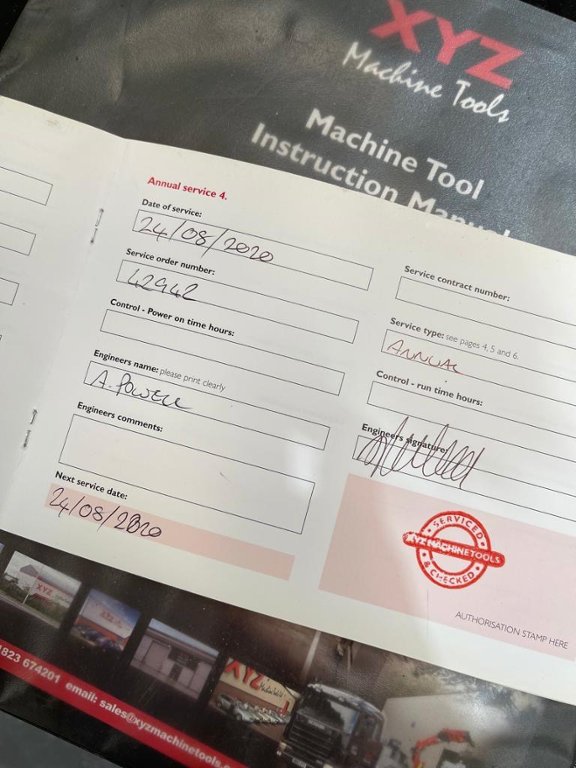 XYZ
Machine Tools
Machine Tool
Instruction Manual
Annual service 4.
Date of service:
24/08/2020
Service order number:
42942
Control - Power on time hours:
Engineers name: please print clearly
A. POWELL
Engineers comments:
Next service date:
24/08/2020
Service contract number:
Service type: see pages 4, 5 and 6.
ANNUAL
Control - run time hours:
Engineers signature:
SERVICED
XYZ MACHINE TOOLS
& CHECKED
AUTHORISATION STAMP HERE
XYZ
XYZ
823 674201 email: sales@xyzmachinetools.c